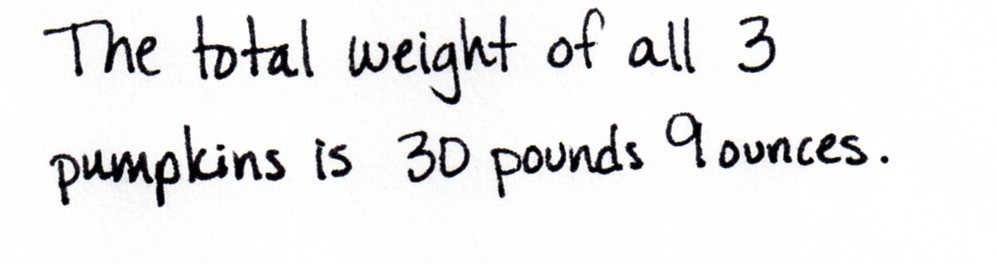 The total weight of all 3
pumpkins is 30 pounds 9 ounces.